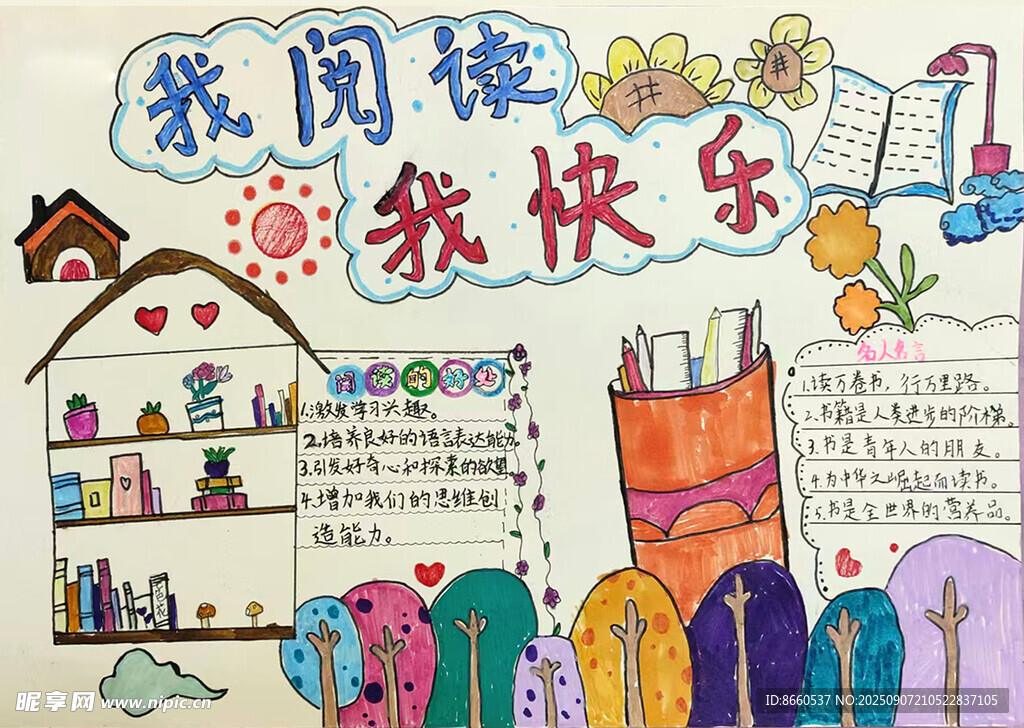 我阅读
我快乐
阅读的好处
1.激发学习兴趣。
2.培养良好的语言表达能力。
3.引发好奇心和探索的欲望。
4.增加我们的思维创
造能力。
名人名言
1.读万卷书，行万里路。
2.书籍是人类进步的阶梯。
3.书是青年人的朋友。
4.为中华之崛起而读书。
5.书是全世界的营养品。
昵享网 www.nipic.cn
ID:8660537 NO:20250907210522837105